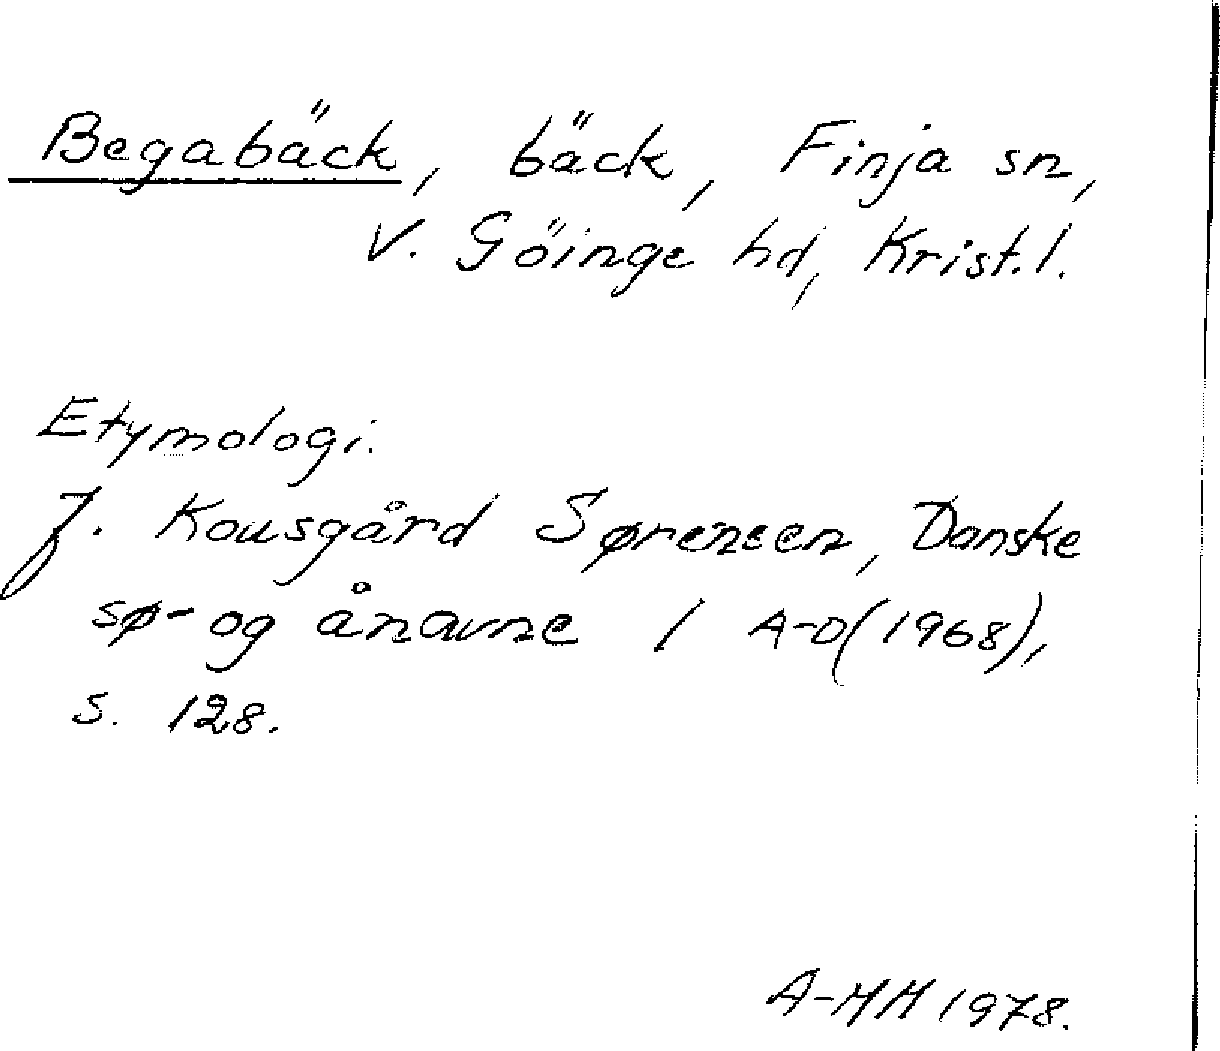 Begabäck, bäck, Finja sn,
V. Göinge hd, Krist. l.
Etymologi.
J. Kousgård Sørensen, Danske
sø- og ånavne 1 A-D (1968),
s. 128.
A-MH 1978.